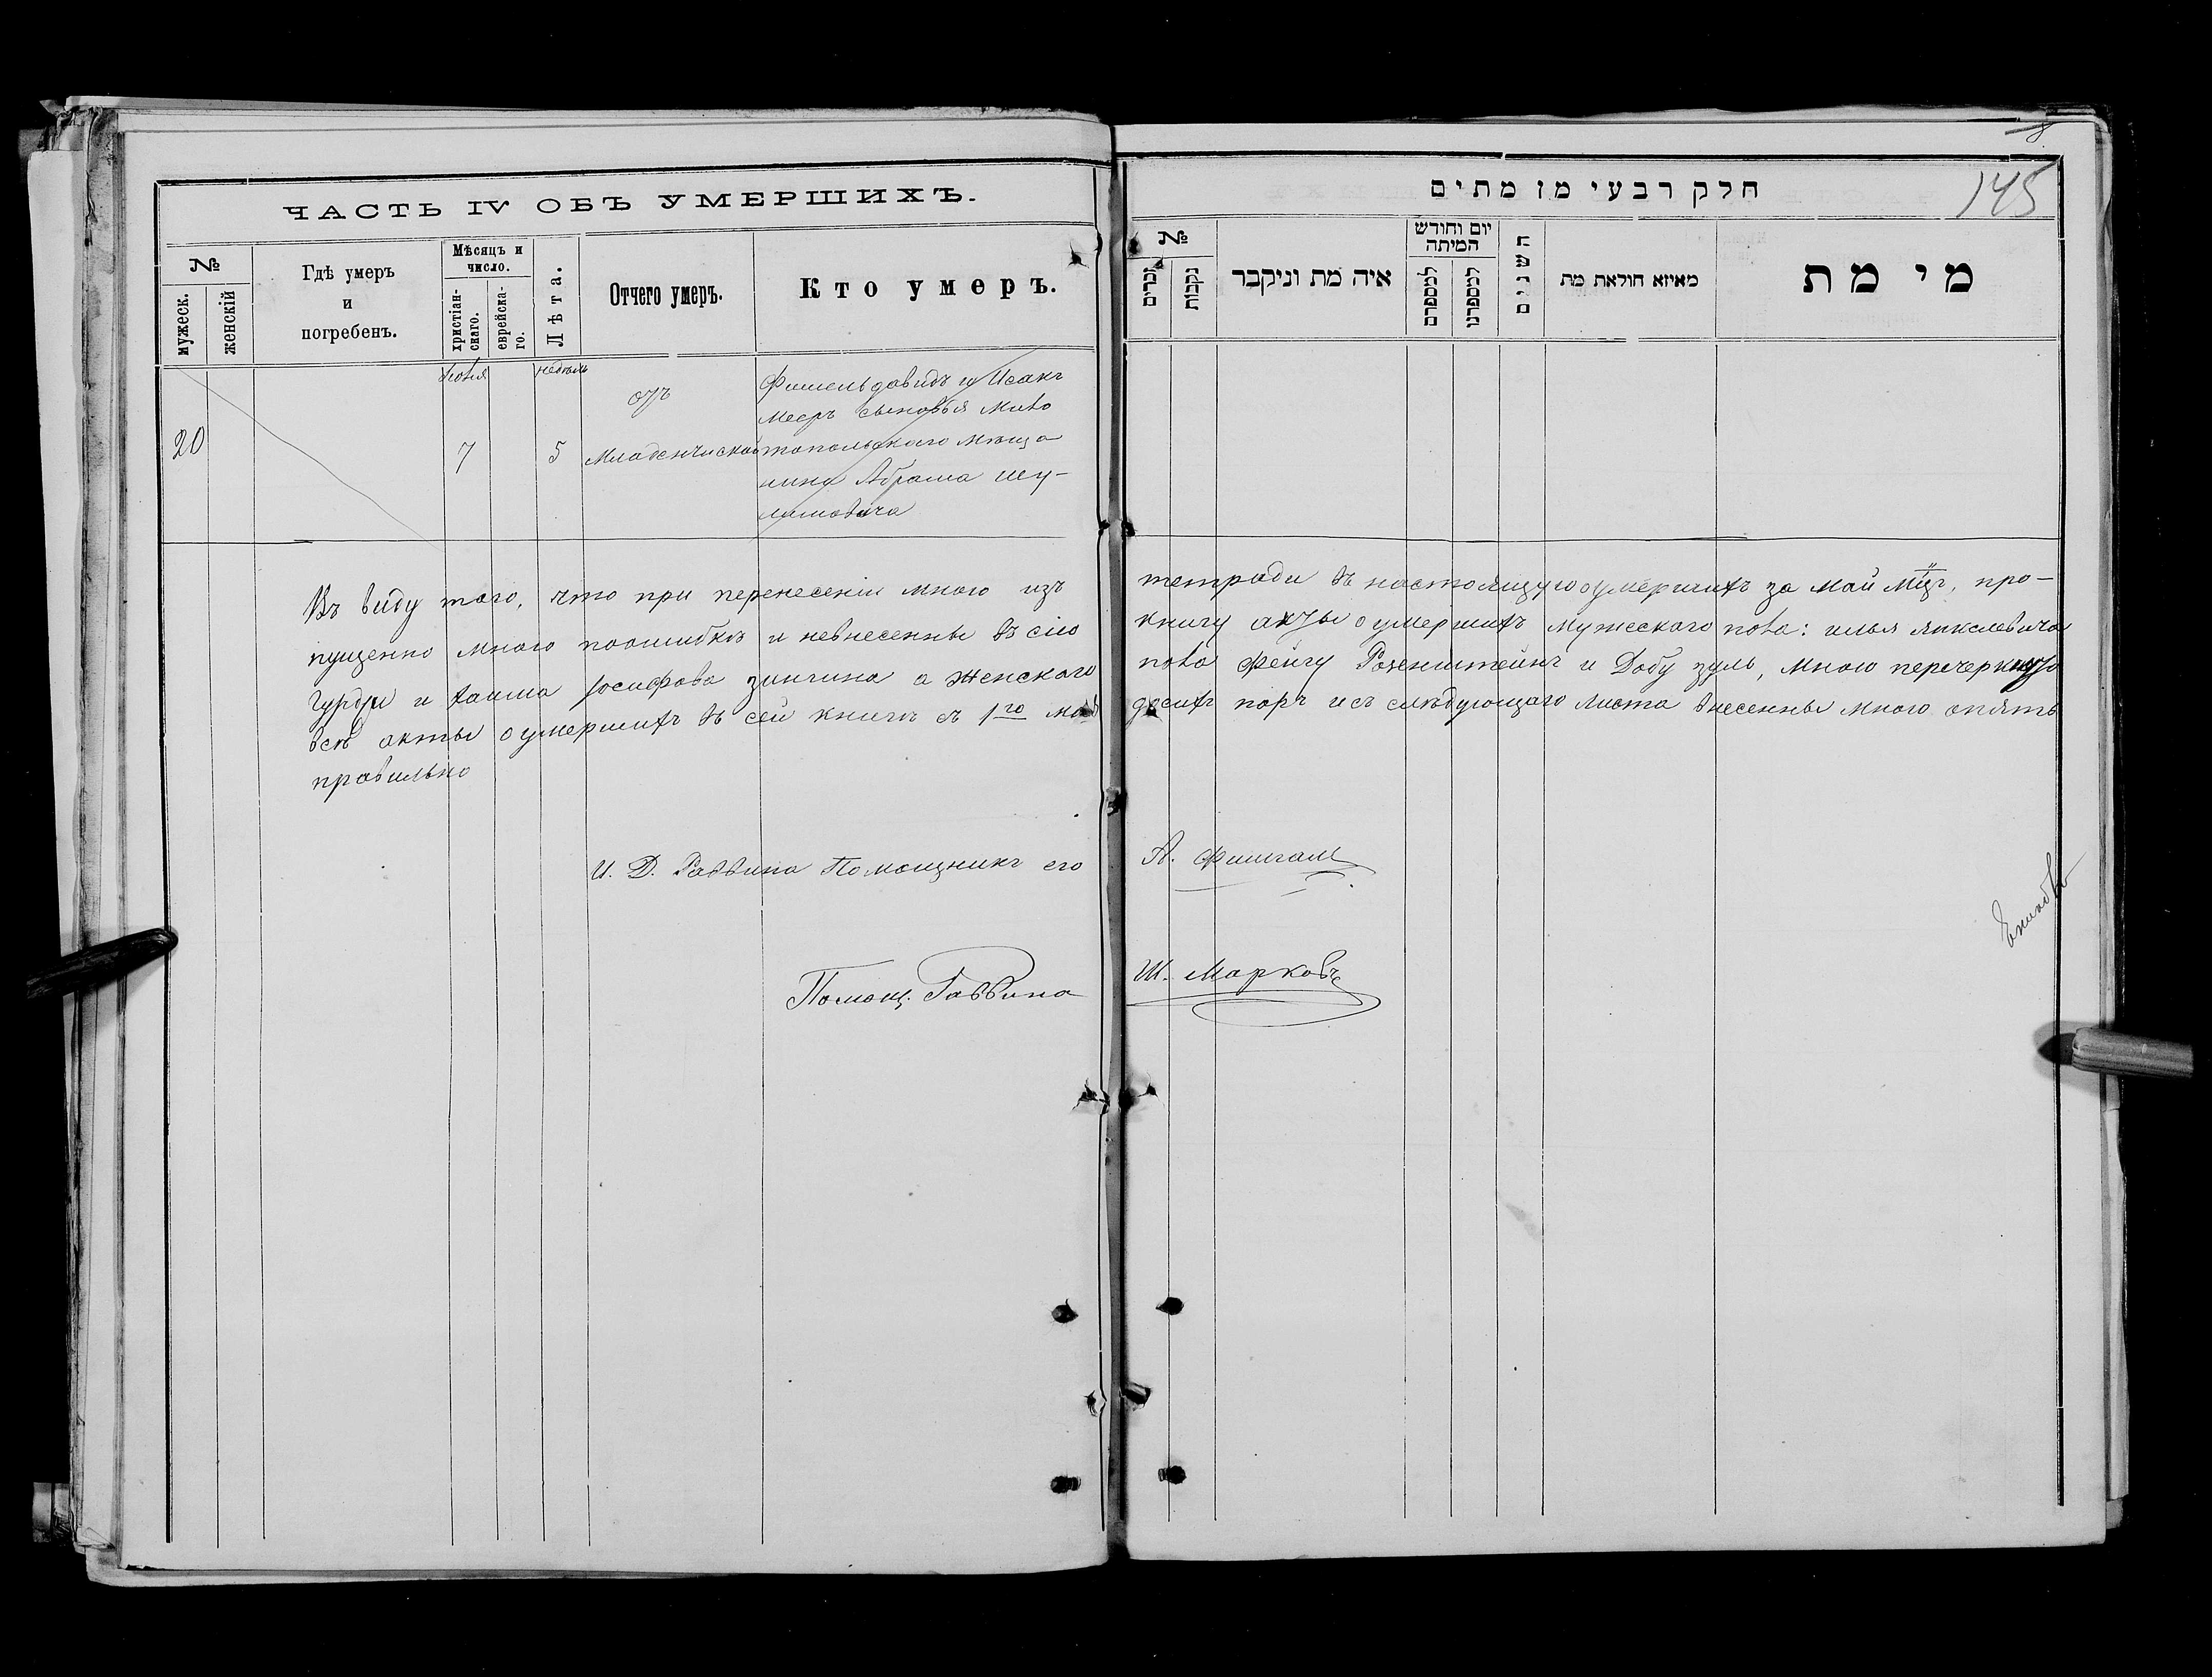 ЧАСТЬ IV ОБЪ УМЕРШИХЪ.
№
мужеск.
женскій
Гдѣ умеръ
и
погребенъ.
Мѣсяцъ и
число.
христіан-
скаго.
еврейска-
го.
Лѣта.
Отчего умеръ.
Кто умеръ.
Іюня
недѣль
20
7
5
отъ
Младенческой
Фишель давидъ и Исакъ
Мееръ сыновья Мито
топольскаго Мѣща
нина Абрама Шу-
лимовича
חלק רבעי מן מתים
145
№
זכרים
נקבות
איה מת וניקבר
יום וחודש
המיתה
למספרם
למספרנו
השנים
מאיזא חולאת מת
מי מת
Въ виду того, что при перенесеніи мною изъ тетради въ настоящую умершихъ за май мцъ, про-
пущенно мною поошибкѣ и невнесенны въ сію книгу акты о умершихъ мужескаго пола: илья янкелевича
Гурды и хаима Іосифова зинчина а женскаго пола Фейгу Розенштейнъ и Добу зуль, мною перечеркнуто
всѣ акты о умершихъ въ сей книгѣ съ 1го мая до сихъ поръ и съ слѣдующаго листа внесенны мною опять
правильно
И. Д. Раввина Помощникъ его А. Фишгал
Помощ. Раввина Ш. Марковъ